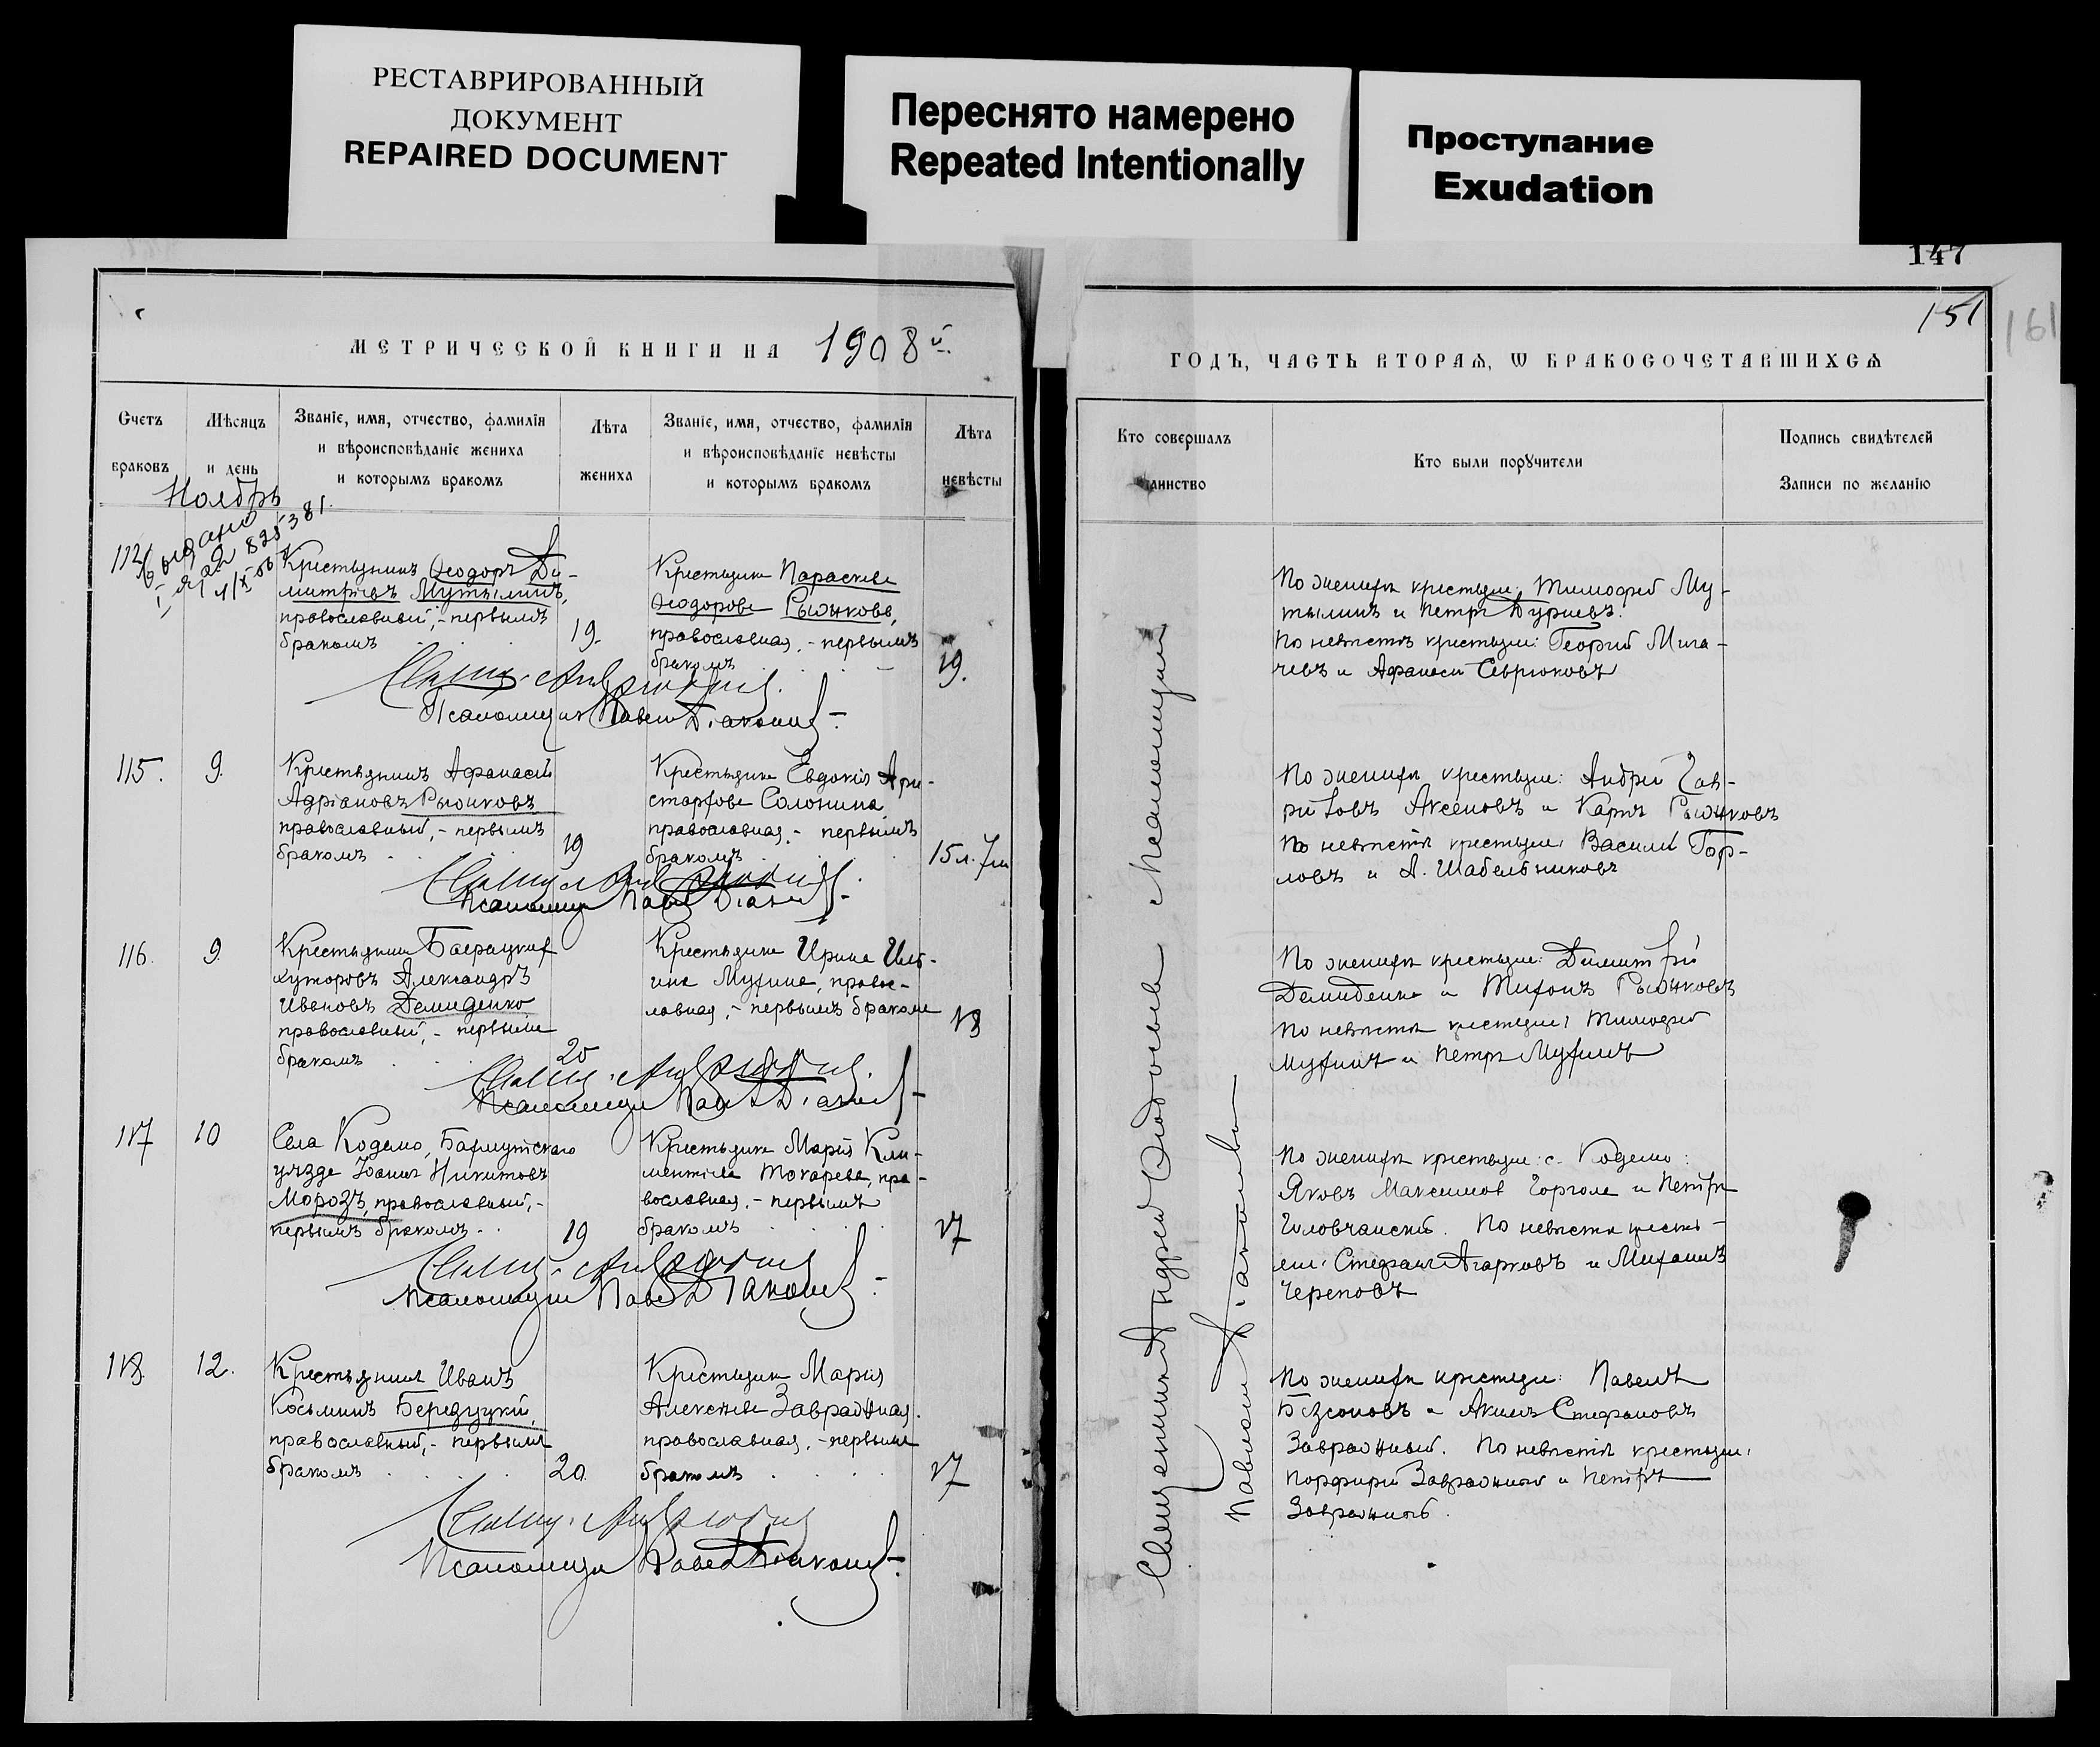 РЕСТАВРИРОВАННЫЙ
ДОКУМЕНТ
REPAIRED DOCUMENT
Переснято намерено
Repeated Intentionally
Проступание
Exudation
147
151
161
МЕТРИЧЕСКОЙ КНИГИ НА 1908й
ГОДЪ, ЧАСТЬ ВТОРАЯ, Ѡ БРАКОСОЧЕТАВШИХСѦ
Счетъ
браковъ
Мѣсяцъ
и день
Званіе, имя, отчество, фамилія
и вѣроисповѣданіе жениха
и которымъ бракомъ
Лѣта
жениха
Званіе, имя, отчество, фамилія
и вѣроисповѣданіе невѣсты
и которымъ бракомъ
Лѣта
невѣсты
Кто совершалъ
таинство
Кто были порꙋчители
Подпись свидѣтелей
Записи по желанію
Ноябрь
Крестьянинъ Ѳеодоръ Ди-
митріевъ Мутылинъ,
православный, - первымъ
бракомъ
19.
Крестьянка Параскева
Ѳеодорова Рыжкова,
православная, - первымъ
бракомъ
19.
Псаломщик Павел Діаконов
По женихѣ крестьяне: Тимофей Му-
тылинъ и Петръ
По невѣстѣ крестьяне: Георгій Мига-
чевъ и Афанасій Севрюковъ
115.
9.
Крестьянинъ Афанасій
Адріановъ Рыжковъ
православный, - первымъ
бракомъ
19
Крестьянка Евдокія Ари-
стархова Солонина
православная, - первымъ
бракомъ
15 л. 7 м
По женихѣ крестьяне: Андрей Гав-
риловъ Аксеновъ и Карпъ Рыжковъ
По невѣстѣ крестьяне: Василій Гор-
ловъ и А. Шабельниковъ
116.
9.
Крестьянин
хуторовъ Александръ
Ивановъ Демиденко
православный, - первымъ
бракомъ
20
Крестьянка Ирина Иль-
ина Мухина, правос-
лавная, - первымъ бракомъ
18
По женихѣ крестьяне: Димитрій
Демиденко и Тихонъ Рыжковъ
По невѣстѣ крестьяне: Тимофей
Мухинъ и Петръ Мухинъ
117
10
Села Кодемо, Бахмутскаго
уѣзда Іоаннъ Никитовъ
Морозъ, православный, -
первымъ бракомъ
19
Крестьянка Марія Кли-
ментіева Токарева, пра-
вославная, - первымъ
бракомъ
17
По женихѣ крестьяне: с. Кодемо:
Яковъ Максимов Горголя и Петръ
По невѣстѣ кресть-
яне: Стефанъ Агарковъ и Михаилъ
Череповъ
118.
12.
Крестьянинъ Иванъ
Косьминъ Березуцкій,
православный, - первымъ
бракомъ
20.
Крестьянка Марія
Алексѣева Завражная.
православная, - первымъ
бракомъ
17
По женихѣ крестьяне: Павелъ
Безсоновъ и Акимъ Стефановъ
Завражный. По невѣстѣ крестьяне:
Порфирій Завражный и Петръ
Завражный.
Священникъ Андрей